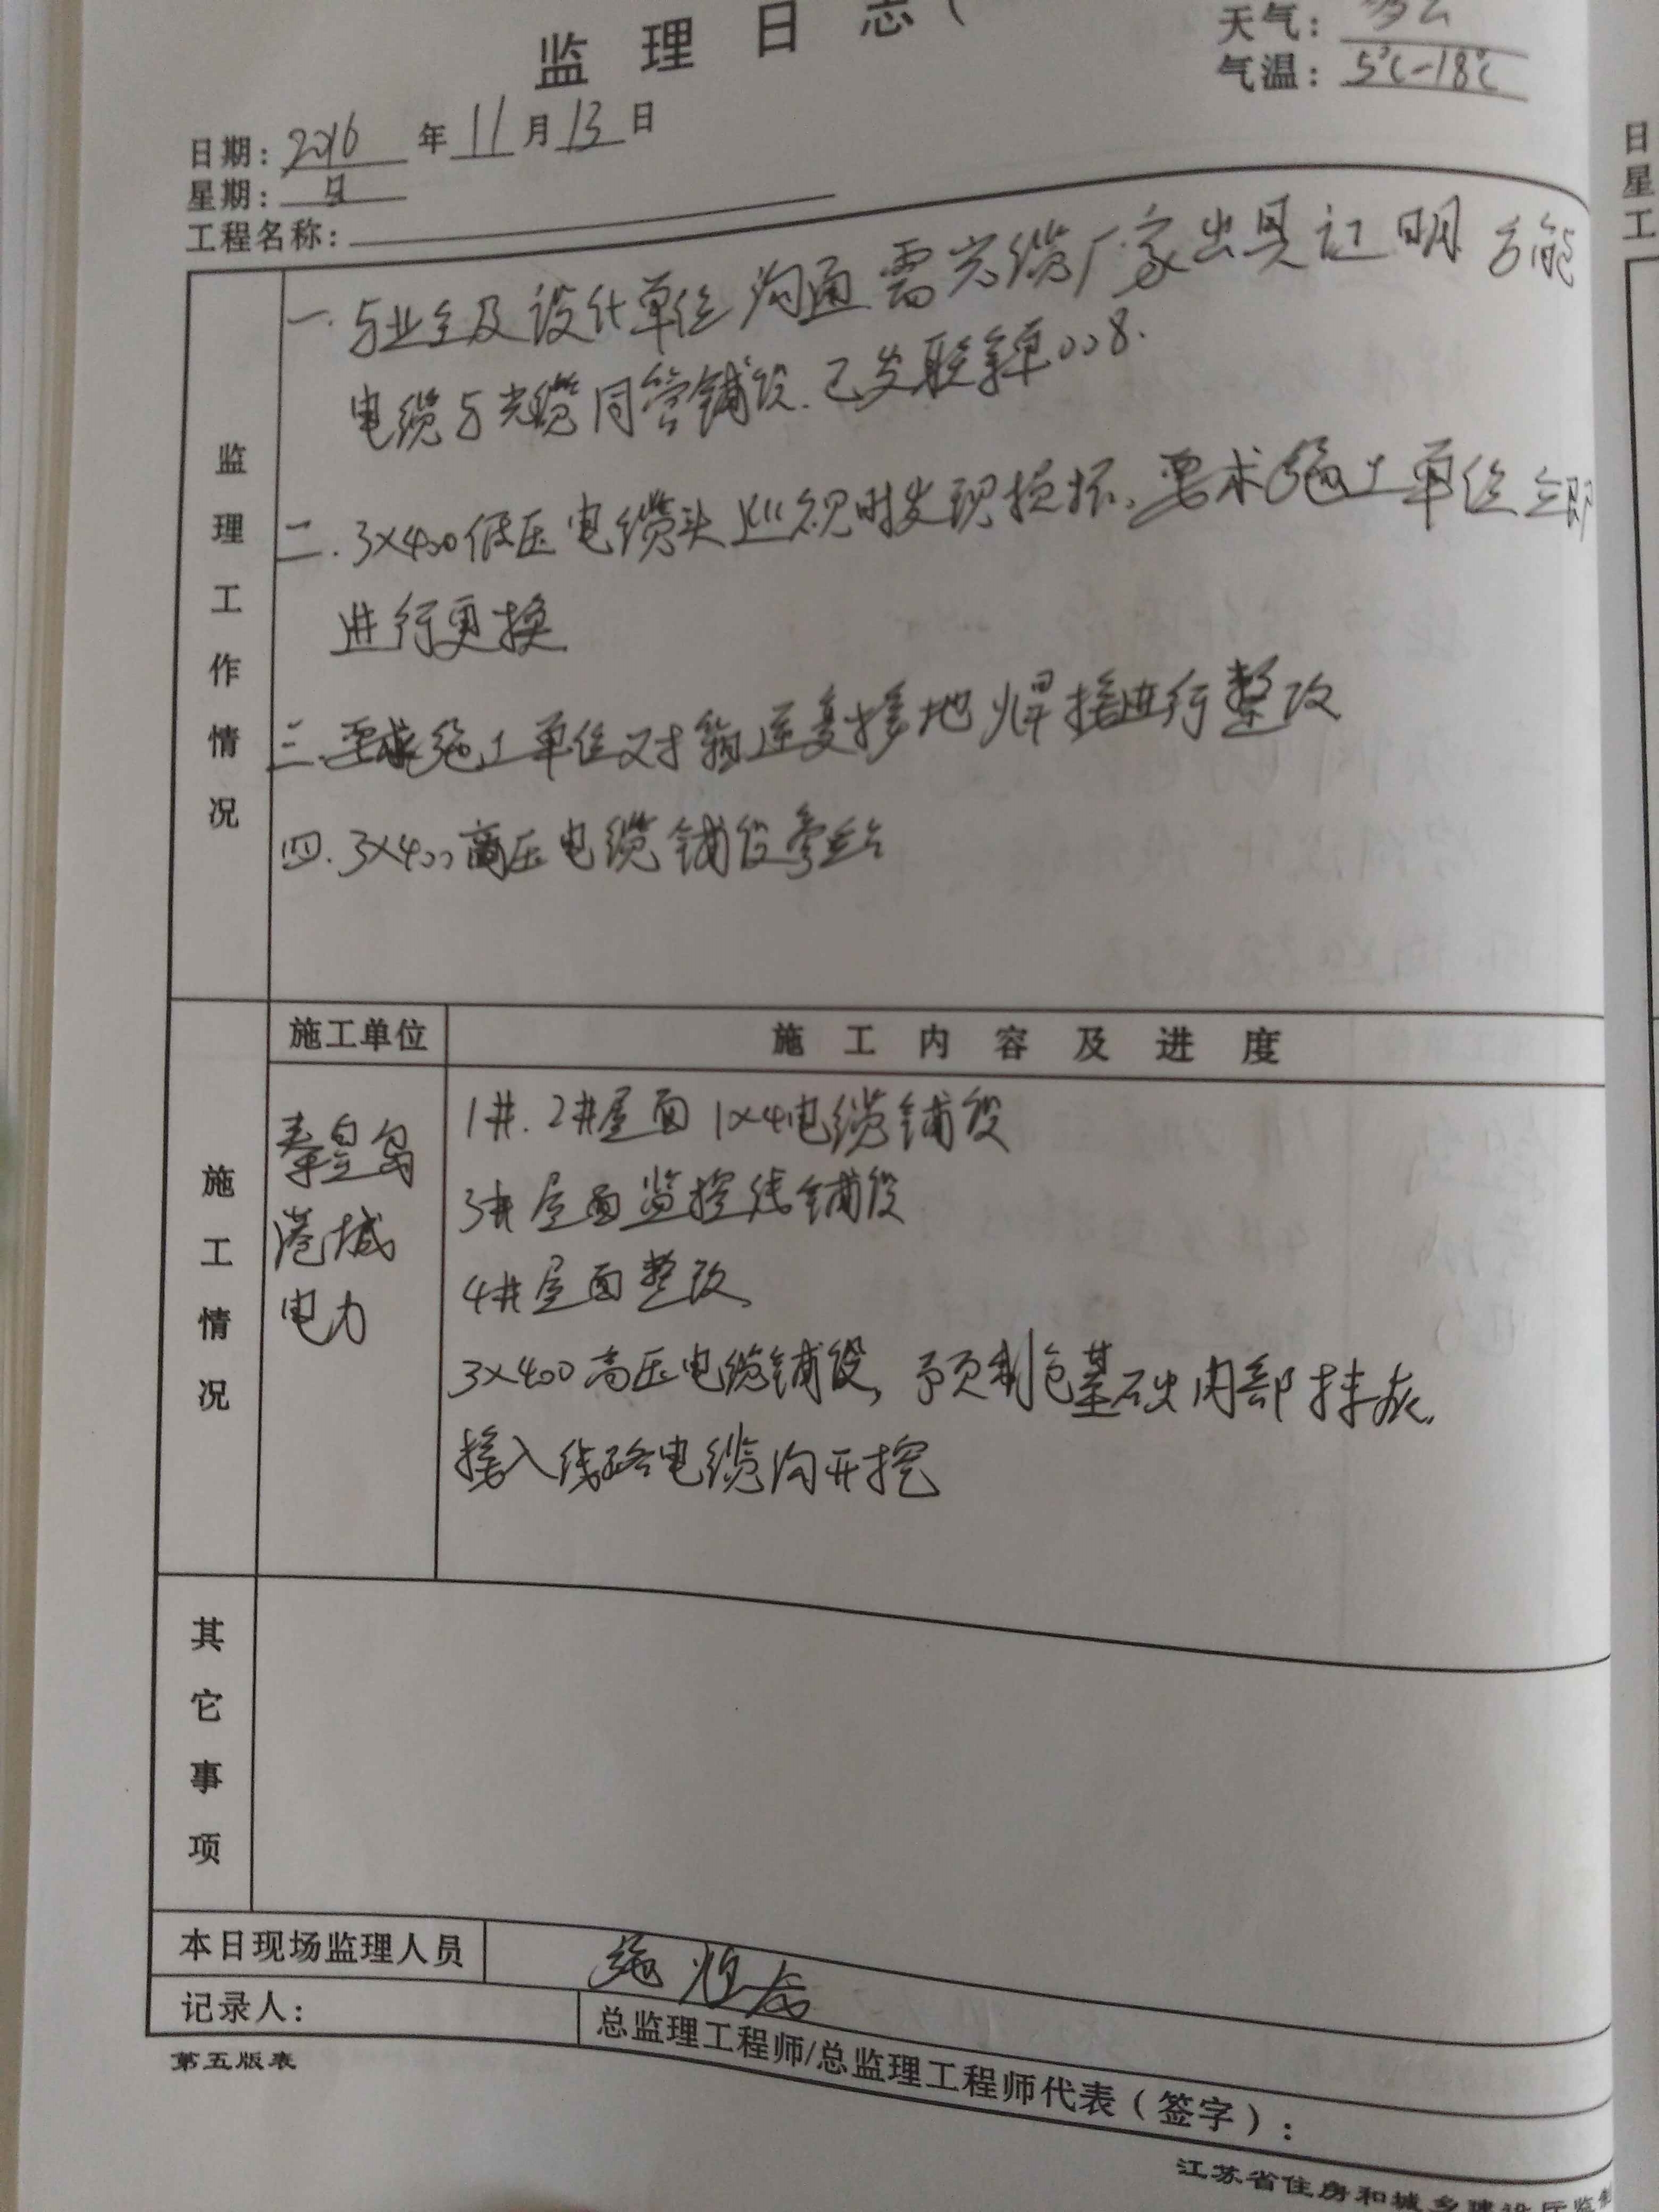 监理日志(
天气：多云
气温：5℃-18℃
日期：2016年11月13日
星期：日
工程名称：
监理工作情况
一.与业主及设计单位沟通需光缆厂家出具证明方能
电缆与光缆同管铺设.已发联系单008.
二.3×400低压电缆头巡视时发现损坏、要求施工单位立即
进行更换
三.要求施工单位对 重复接地焊接进行整改
四.3×400高压电缆铺设旁站
施工情况
施工单位 施工内容及进度
秦皇岛
港城
电力
1#.2#屋面1×4电缆铺设
3#屋面监控线铺设
4#屋面整改
3×400高压电缆铺设,预制仓基础内部抹灰.
接入线路电缆沟开挖
其它事项
本日现场监理人员 施
记录人：
总监理工程师/总监理工程师代表（签字）：
第五版表
江苏省住房和城乡建设厅监制
日
星
工